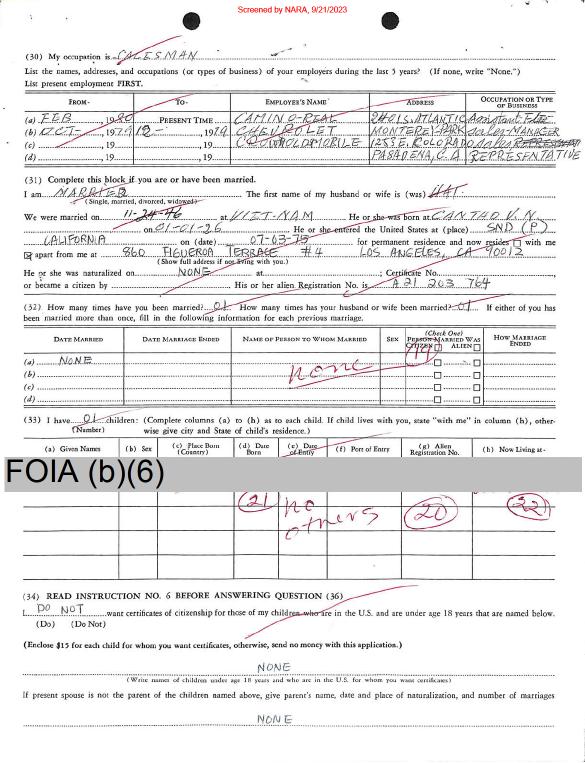 Screened by NARA, 9/21/2023
(30) My occupation is CALESMAN
List the names, addresses, and occupations (or types of business) of your employers during the last 5 years? (If none, write "None.")
List present employment FIRST.
FROM- TO- EMPLOYER'S NAME ADDRESS OCCUPATION OR TYPE OF BUSINESS
(a) FEB, 1980 PRESENT TIME CAMINO-REAL 2401 S. ATLANTIC
(b) OCT-, 1979 12-, 1979 CHEVROLET MONTEREY-PARK sales-MANAGER
(c) , 19 , 19 OLDSMOBILE 1255 E. COLORADO sales
(d) , 19 , 19 PASADENA, C.A REPRESENTATIVE
(31) Complete this block if you are or have been married.
I am MARRIED The first name of my husband or wife is (was) HAI.
(Single, married, divorced, widowed)
We were married on 11-24-46 at VIET-NAM He or she was born at CANTHO V.N.
on 01-01-26 He or she entered the United States at (place) SND (P)
CALIFORNIA on (date) 07-03-75 for permanent residence and now resides with me
apart from me at 860 FIGUEROA TERRACE #4 LOS ANGELES, CA 90012
(Show full address if not living with you.)
He or she was naturalized on NONE at Certificate No.
or became a citizen by His or her alien Registration No. is A21 203 764
(32) How many times have you been married? 01 How many times has your husband or wife been married? 01 If either of you has
been married more than once, fill in the following information for each previous marriage.
DATE MARRIED DATE MARRIAGE ENDED NAME OF PERSON TO WHOM MARRIED SEX (Check One) PERSON MARRIED WAS CITIZEN ALIEN HOW MARRIAGE ENDED
(a) NONE none
(b)
(c)
(d)
(33) I have 01 children: (Complete columns (a) to (h) as to each child. If child lives with you, state "with me" in column (h), other-
(Number) wise give city and State of child's residence.)
(a) Given Names (b) Sex (c) Place Born (Country) (d) Date Born (e) Date of Entry (f) Port of Entry (g) Alien Registration No. (h) Now Living at-
FOIA (b)(6)
21 no others 20 22
(34) READ INSTRUCTION NO. 6 BEFORE ANSWERING QUESTION (36)
I DO NOT want certificates of citizenship for those of my children who are in the U.S. and are under age 18 years that are named below.
(Do) (Do Not)
(Enclose $15 for each child for whom you want certificates, otherwise, send no money with this application.)
NONE
(Write names of children under age 18 years and who are in the U.S. for whom you want certificates)
If present spouse is not the parent of the children named above, give parent's name, date and place of naturalization, and number of marriages
NONE